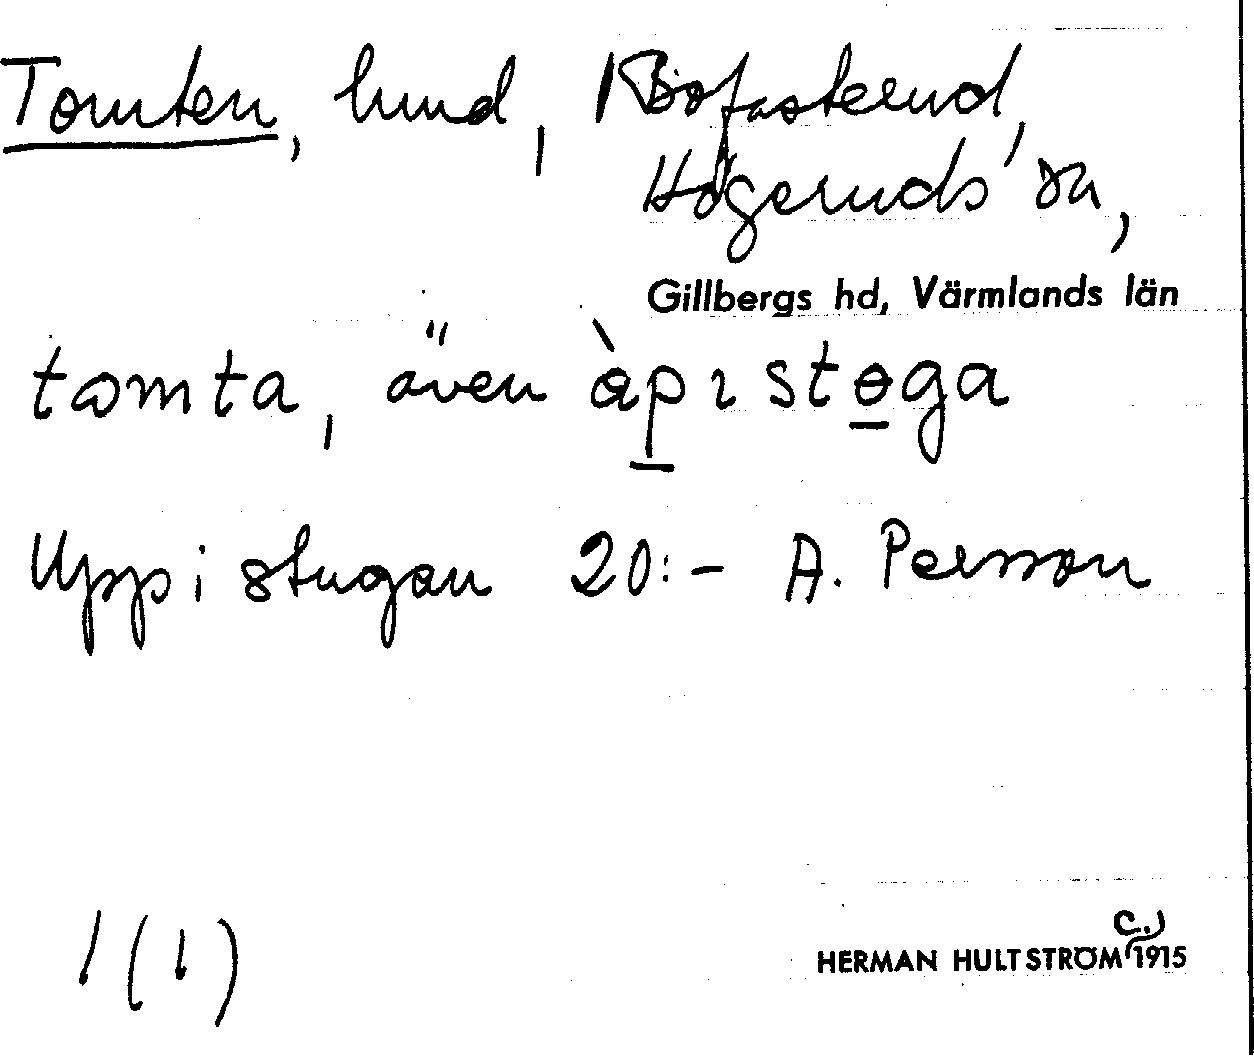 Tomten, lund,
Högeruds sn,
Gillbergs hd, Värmlands län
tomta, även àpı stɵga
Upp i stugan 20:- A. Persson
1 (1)
C.
HERMAN HULTSTRÖM 1915